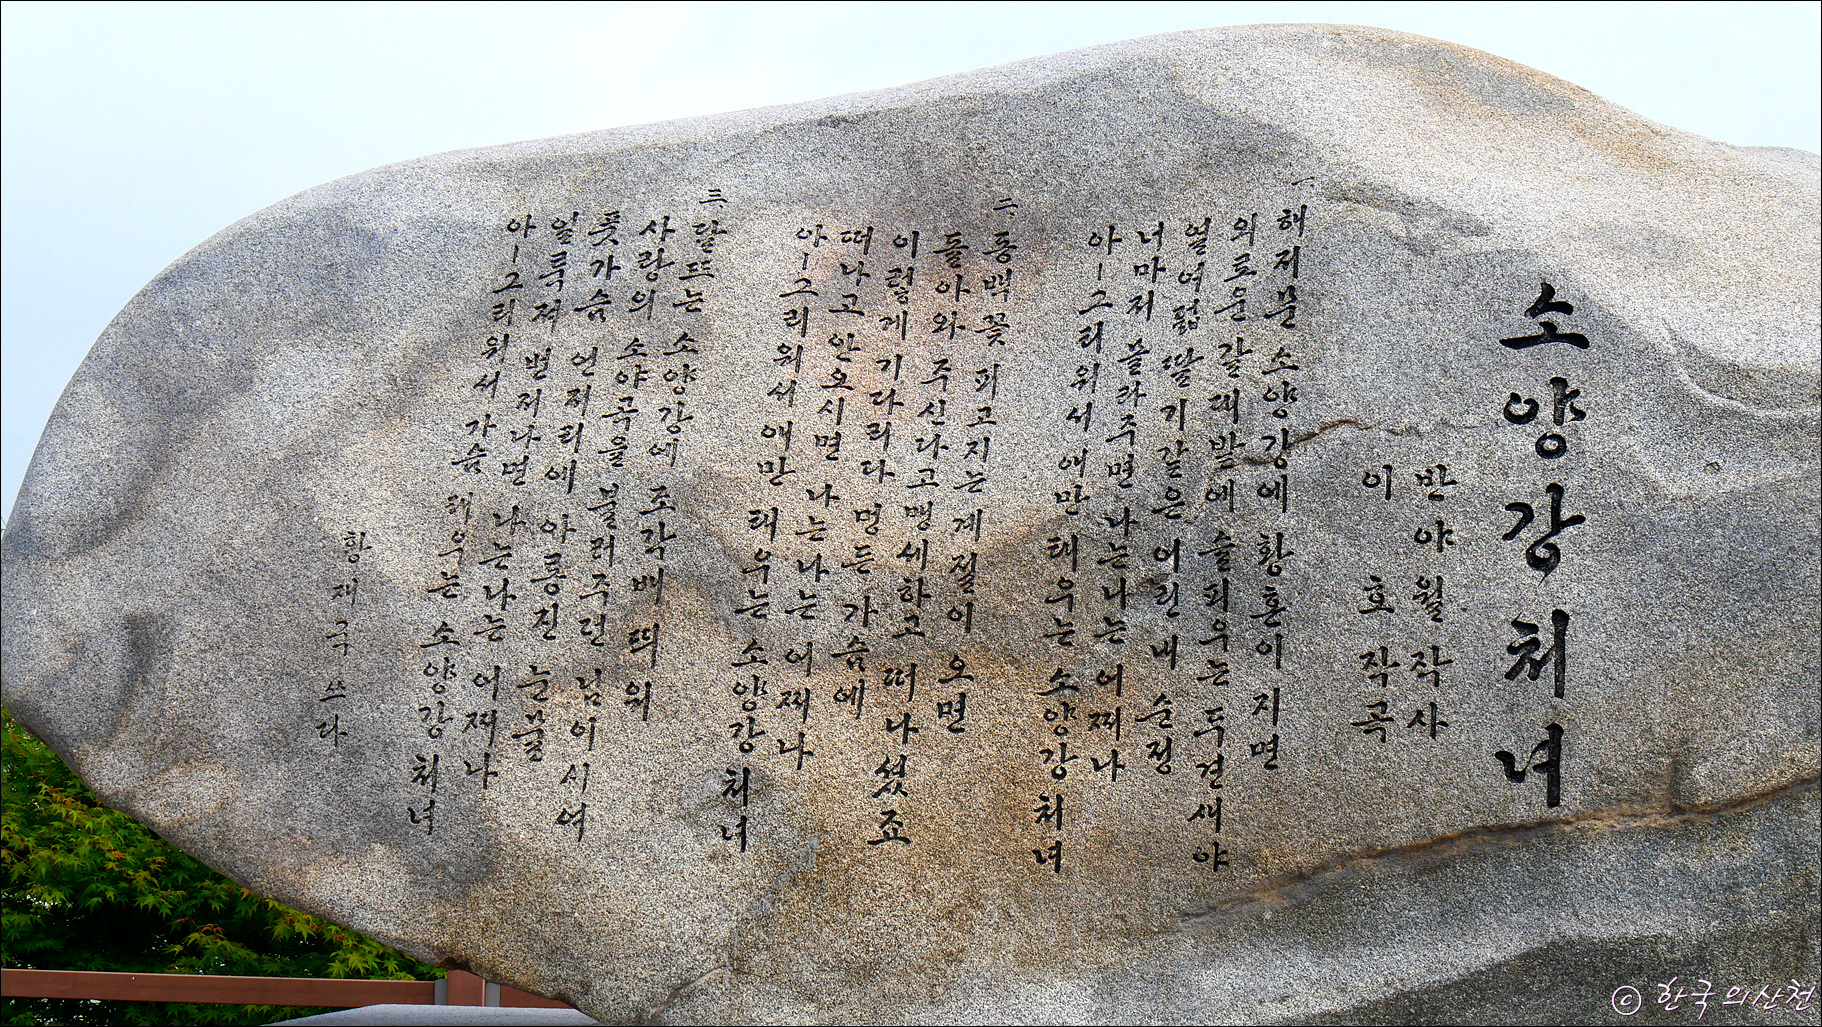 소양강 처녀
반야월 작사
이 호 작곡
一、해저문 소양강에 황혼이 지면
외로운 갈대밭에 슬피우는 두견새야
열여덟 딸기같은 어린 내 순정
너마저 몰라주면 나는나는 어쩌나
아ㅡ그리워서 애만 태우는 소양강 처녀
二、동백꽃 피고지는 계절이 오면
돌아와 주신다고 맹세하고 떠나셨죠
이렇게 기다리다 멍든 가슴에
떠나고 안오시면 나는나는 어쩌나
아ㅡ그리워서 애만 태우는 소양강 처녀
三、달뜨는 소양강에 조각배 띄워
사랑의 소야곡을 불러주던 님이시여
풋가슴 언저리에 아롱진 눈물
얼룩져 번져나면 나는나는 어쩌나
아ㅡ그리워서 가슴 태우는 소양강 처녀
황재국 쓰다
© 한국의산천